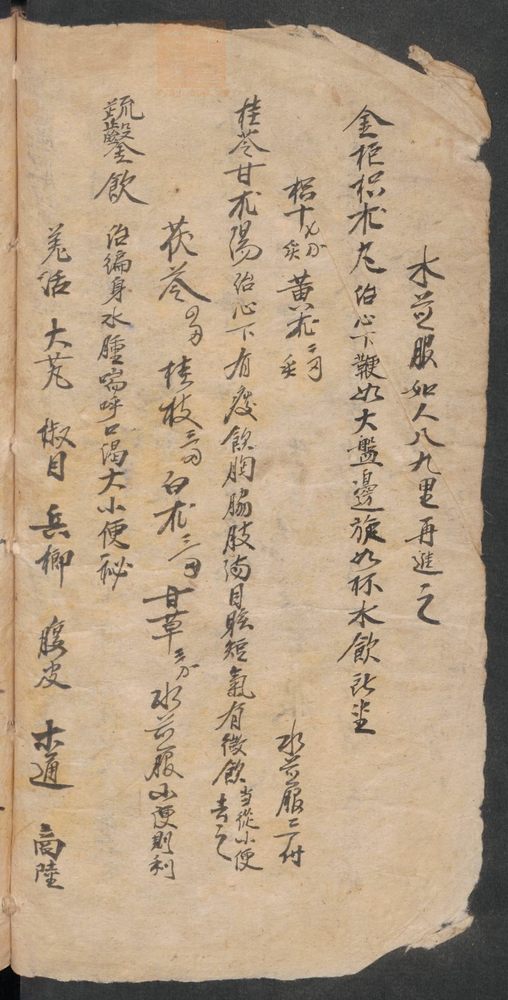 水煎服如人八九里再進之
金柜枳朮丸治心下鞕如大盤邊旋如杯水飲所
枳十 黃朮二 水煎服二付
桂苓甘朮陽治心下有痰飲胸脇肢滿目眩短氣有微飲当從小便去之
茯苓 桂枝三 白朮三 甘草 水煎服小便則利
疏鑿飲 治徧身水腫喘呼口渴大小便祕
羌活 大艽 椒目 兵榔 腹皮 木通 商陸